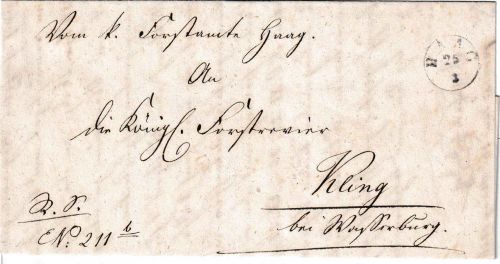 Vom k. Forstamte Haag.
HAAG
25
3
An
die Königl. Forstrevier
Kling
bei Wasserburg.
R. S.
No. 211 b